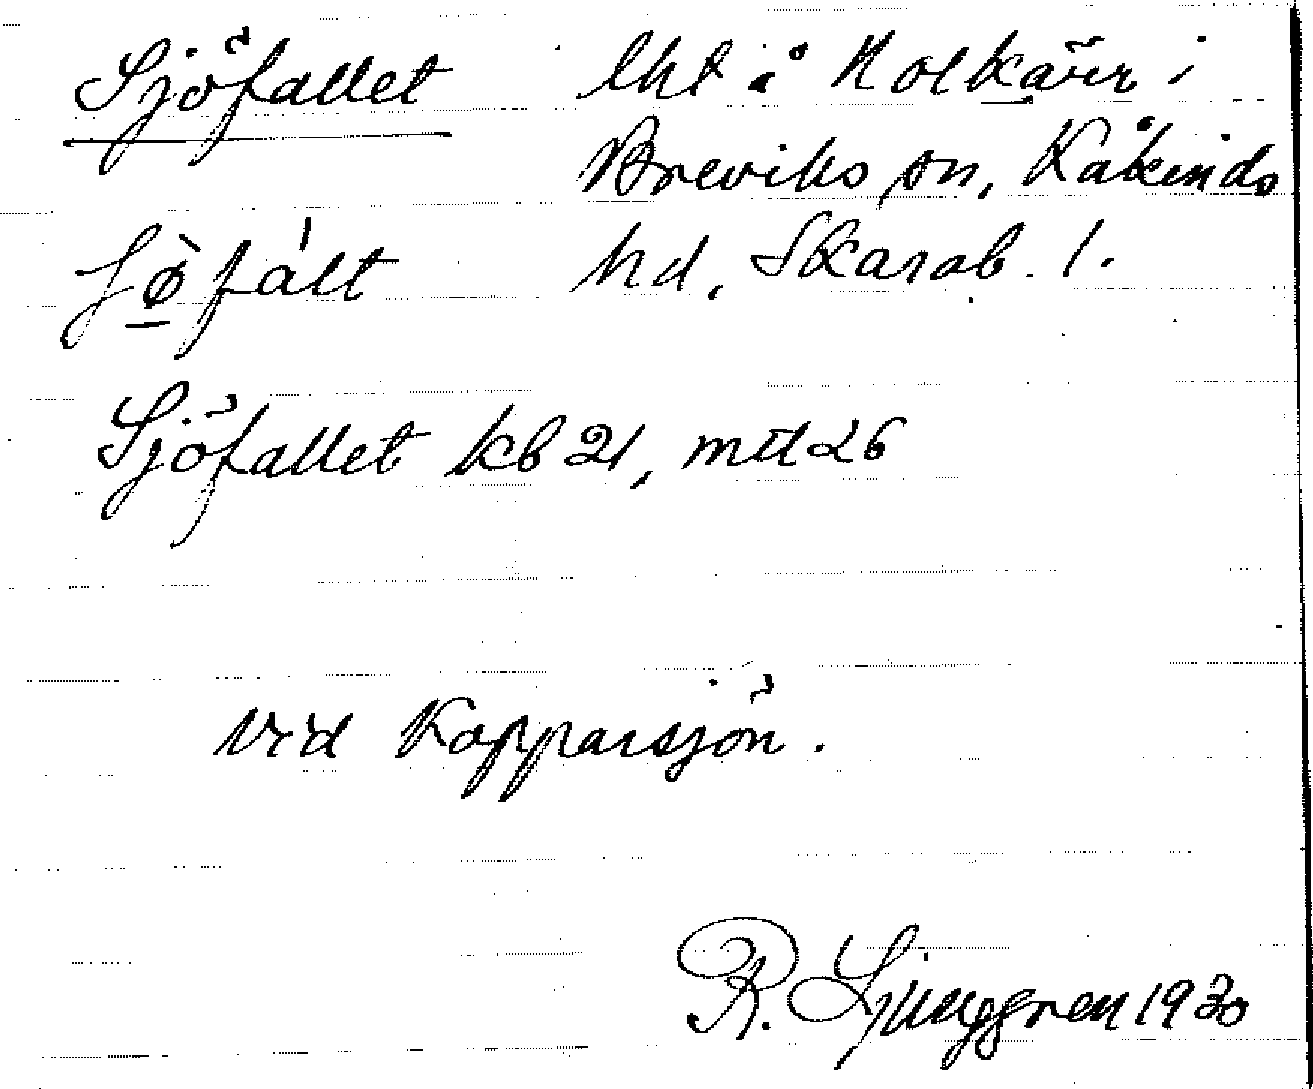 Sjöfallet lht å Kolkärr i
Breviks sn, Kåkinds
hd, Skarab. l.
Sjöfallet kb 21, mtl 26
Vid Kopparsjön.
R. Ljunggren 1930